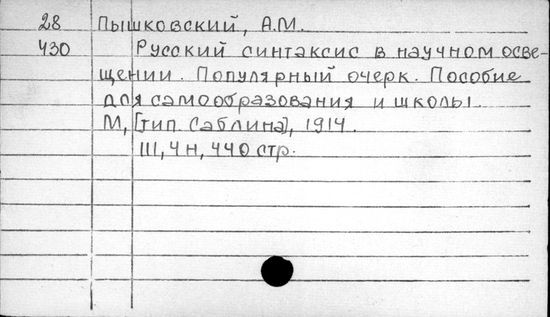 28 Пышковский, А.М.
430 Русский синтаксис в научном осве-
щении. Популярный очерк. Пособие
для самообразования и школы
М, [тип. Саблина], 1914.
III, 4 н, 440 стр.